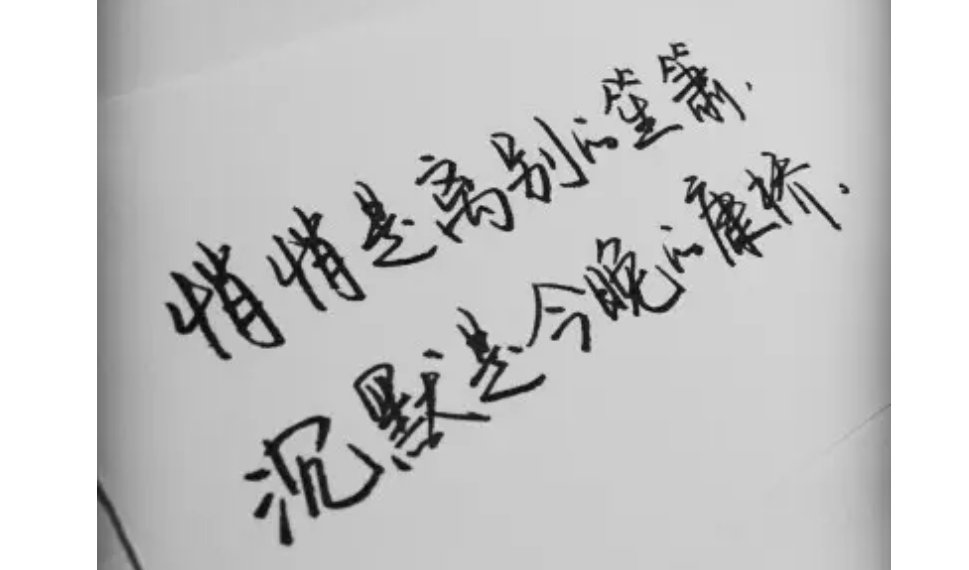 悄悄是离别的笙箫.
沉默是今晚的康桥.